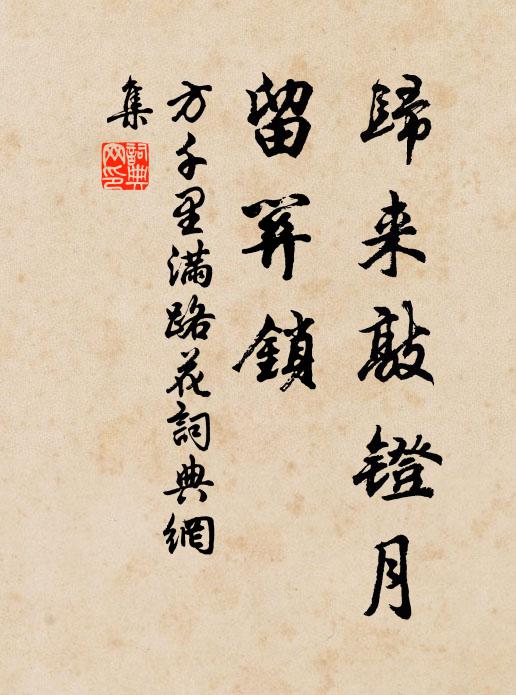 歸来敲鐙月
留關鎖
方千里滿路花詞典網
集
詞典网印